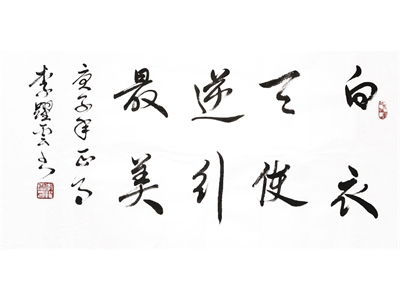 白衣
天使
逆行
最美
庚子年正月
李